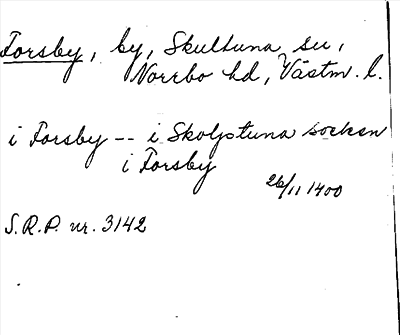 Forsby, by, Skultuna sn,
Norrbo hd, Västm. l.
i Forsby -- i Skolptuna socken
i Forsby
26/11 1400
S.R.P. nr. 3142